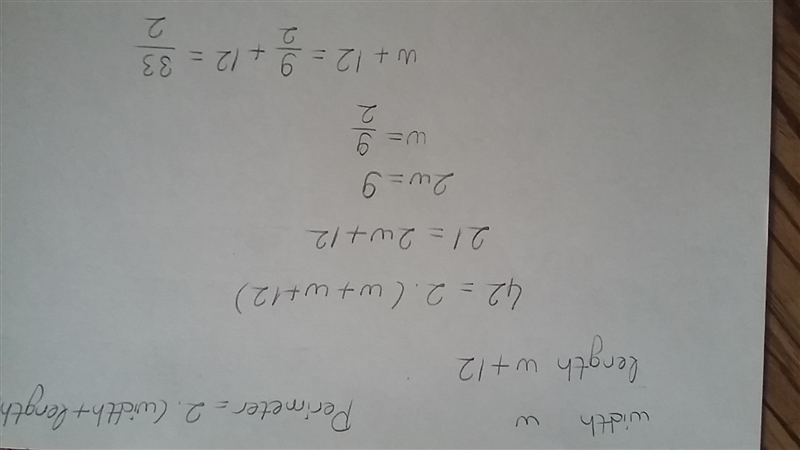 width w Perimeter = 2.(width+length
length w+12
42 = 2.(w+w+12)
21 = 2w+12
2w=9
w= 9/2
w+12 = 9/2 +12 = 33/2